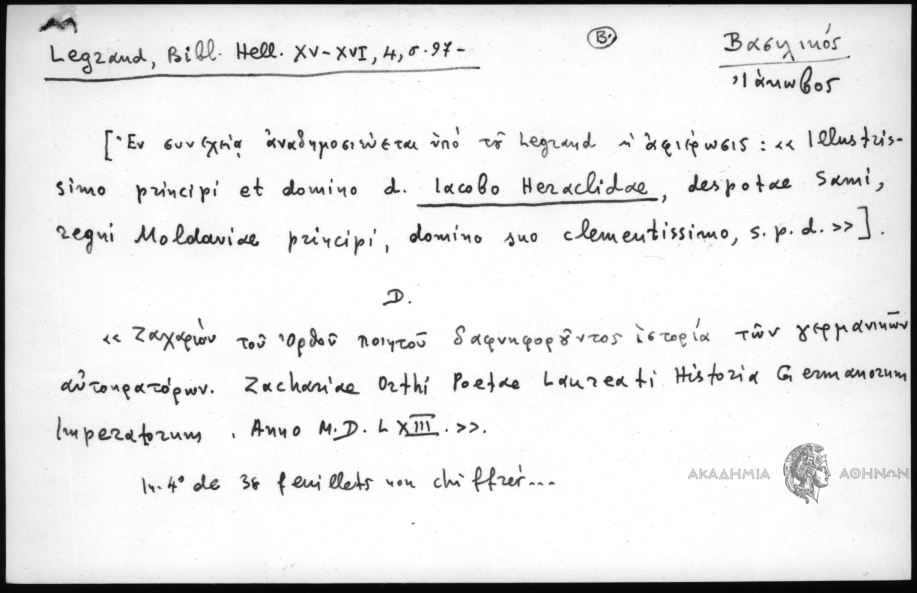 Legrand, Bibl. Hell. XV-XVI, 4, σ. 97-
Β.
Βασιλικός
Ἰάκωβος
[Ἐν συνεχείᾳ ἀναδημοσιεύεται ὑπό τοῦ Legrand ἡ ἀφιέρωσις: «Illustris-
simo principi et domino d. Iacobo Heraclidae, despotae Sami,
regni Moldaviae principi, domino suo clementissimo, s. p. d.»].
D.
«Ζαχαρίου τοῦ Ὀρθοῦ ποιητοῦ δαφνηφοροῦντος ἱστορία τῶν γερμανικῶν
αὐτοκρατόρων. Zachariae Orthi Poetae Laureati Historia Germanorum
Imperatorum. Anno M.D.LXIII.».
In-4° de 38 feuillets non chiffrés...
ΑΚΑΔΗΜΙΑ ΑΘΗΝΩΝ